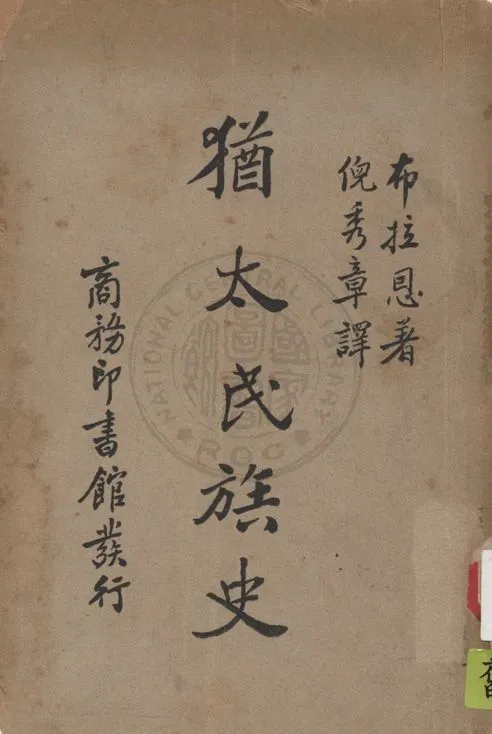 布拉恩著
倪秀章譯
猶太民族史
商務印書館發行
NATIONAL CENTRAL LIBRARY
R.O.C.
國家圖書館
舊